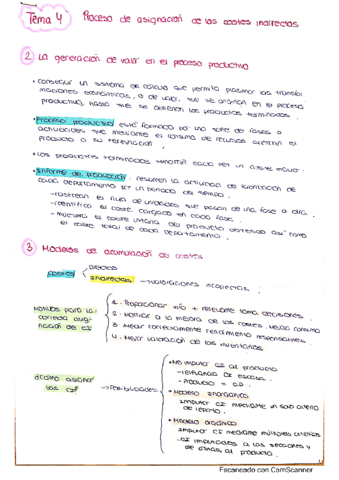 Tema 4 Proceso de asignación de los costes indirectos
2 La generación de valor en el proceso productivo
• Conseguir un sistema de cálculo que permita plasmar las transfor
maciones económicas, o de valor, que se originan en el proceso
productivo, hasta que se obtienen los productos terminados.
• Proceso productivo está formado por una serie de fases o
actividades que mediante el consumo de recursos orientan el
producto a su terminación
• Los productos terminados
• Informe de producción: resumen la actividad de fabricación de
cada departamento por un periodo de tiempo.
-rastrean el flujo de unidades que pasan de una fase a otra.
-identifica el coste cargado en cada fase.
-muestra el coste unitario del producto obtenido así como
el coste total de cada departamento.
3 Modelos de acumulación de costes
costes
directos
indirectos → valoraciones incorrectas.
Motivos para la
correcta asig-
nación de CI
1. Proporcionar info + relevante toma decisiones.
2. Motivar a la mejora de los costes. Mejor consumo
3. Medir correctamente rendimiento responsables.
4. Mejor valoración de los inventarios.
¿Cómo asignar
los CI?
→ Posibilidades:
• No imputar CI al producto
-relevancia CI escasa.
• Modelo inorgánico
Imputar CI mediante un solo criterio
de reparto.
• Modelo orgánico
Imputar CI mediante múltiples criterios
-CI imputados a las secciones y
de éstas, al producto.
Escaneado con CamScanner